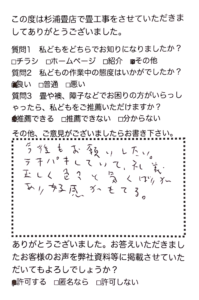 この度は杉浦畳店で畳工事をさせていただきまし
てありがとうございました。
質問1　私どもをどちらでお知りになりましたか？
□チラシ　□ホームページ　□紹介　■その他
質問2　私どもの作業中の態度はいかがでしたか？
■良い　□普通　□悪い
質問3　畳や襖、障子などでお困りの方がいらっし
ゃったら、私どもをご推薦いただけますか？
■推薦できる　□推薦できない　□分からない
その他、ご意見がございましたらお書き下さい。
今後もお願いしたい。
テキパキしていて、礼義
正しく
好感がもてる。
ありがとうございました。お答えいただきまし
たお客様のお声を弊社資料等に掲載させていた
だいてもよろしでしょうか？
■許可する　□匿名なら　□許可しない